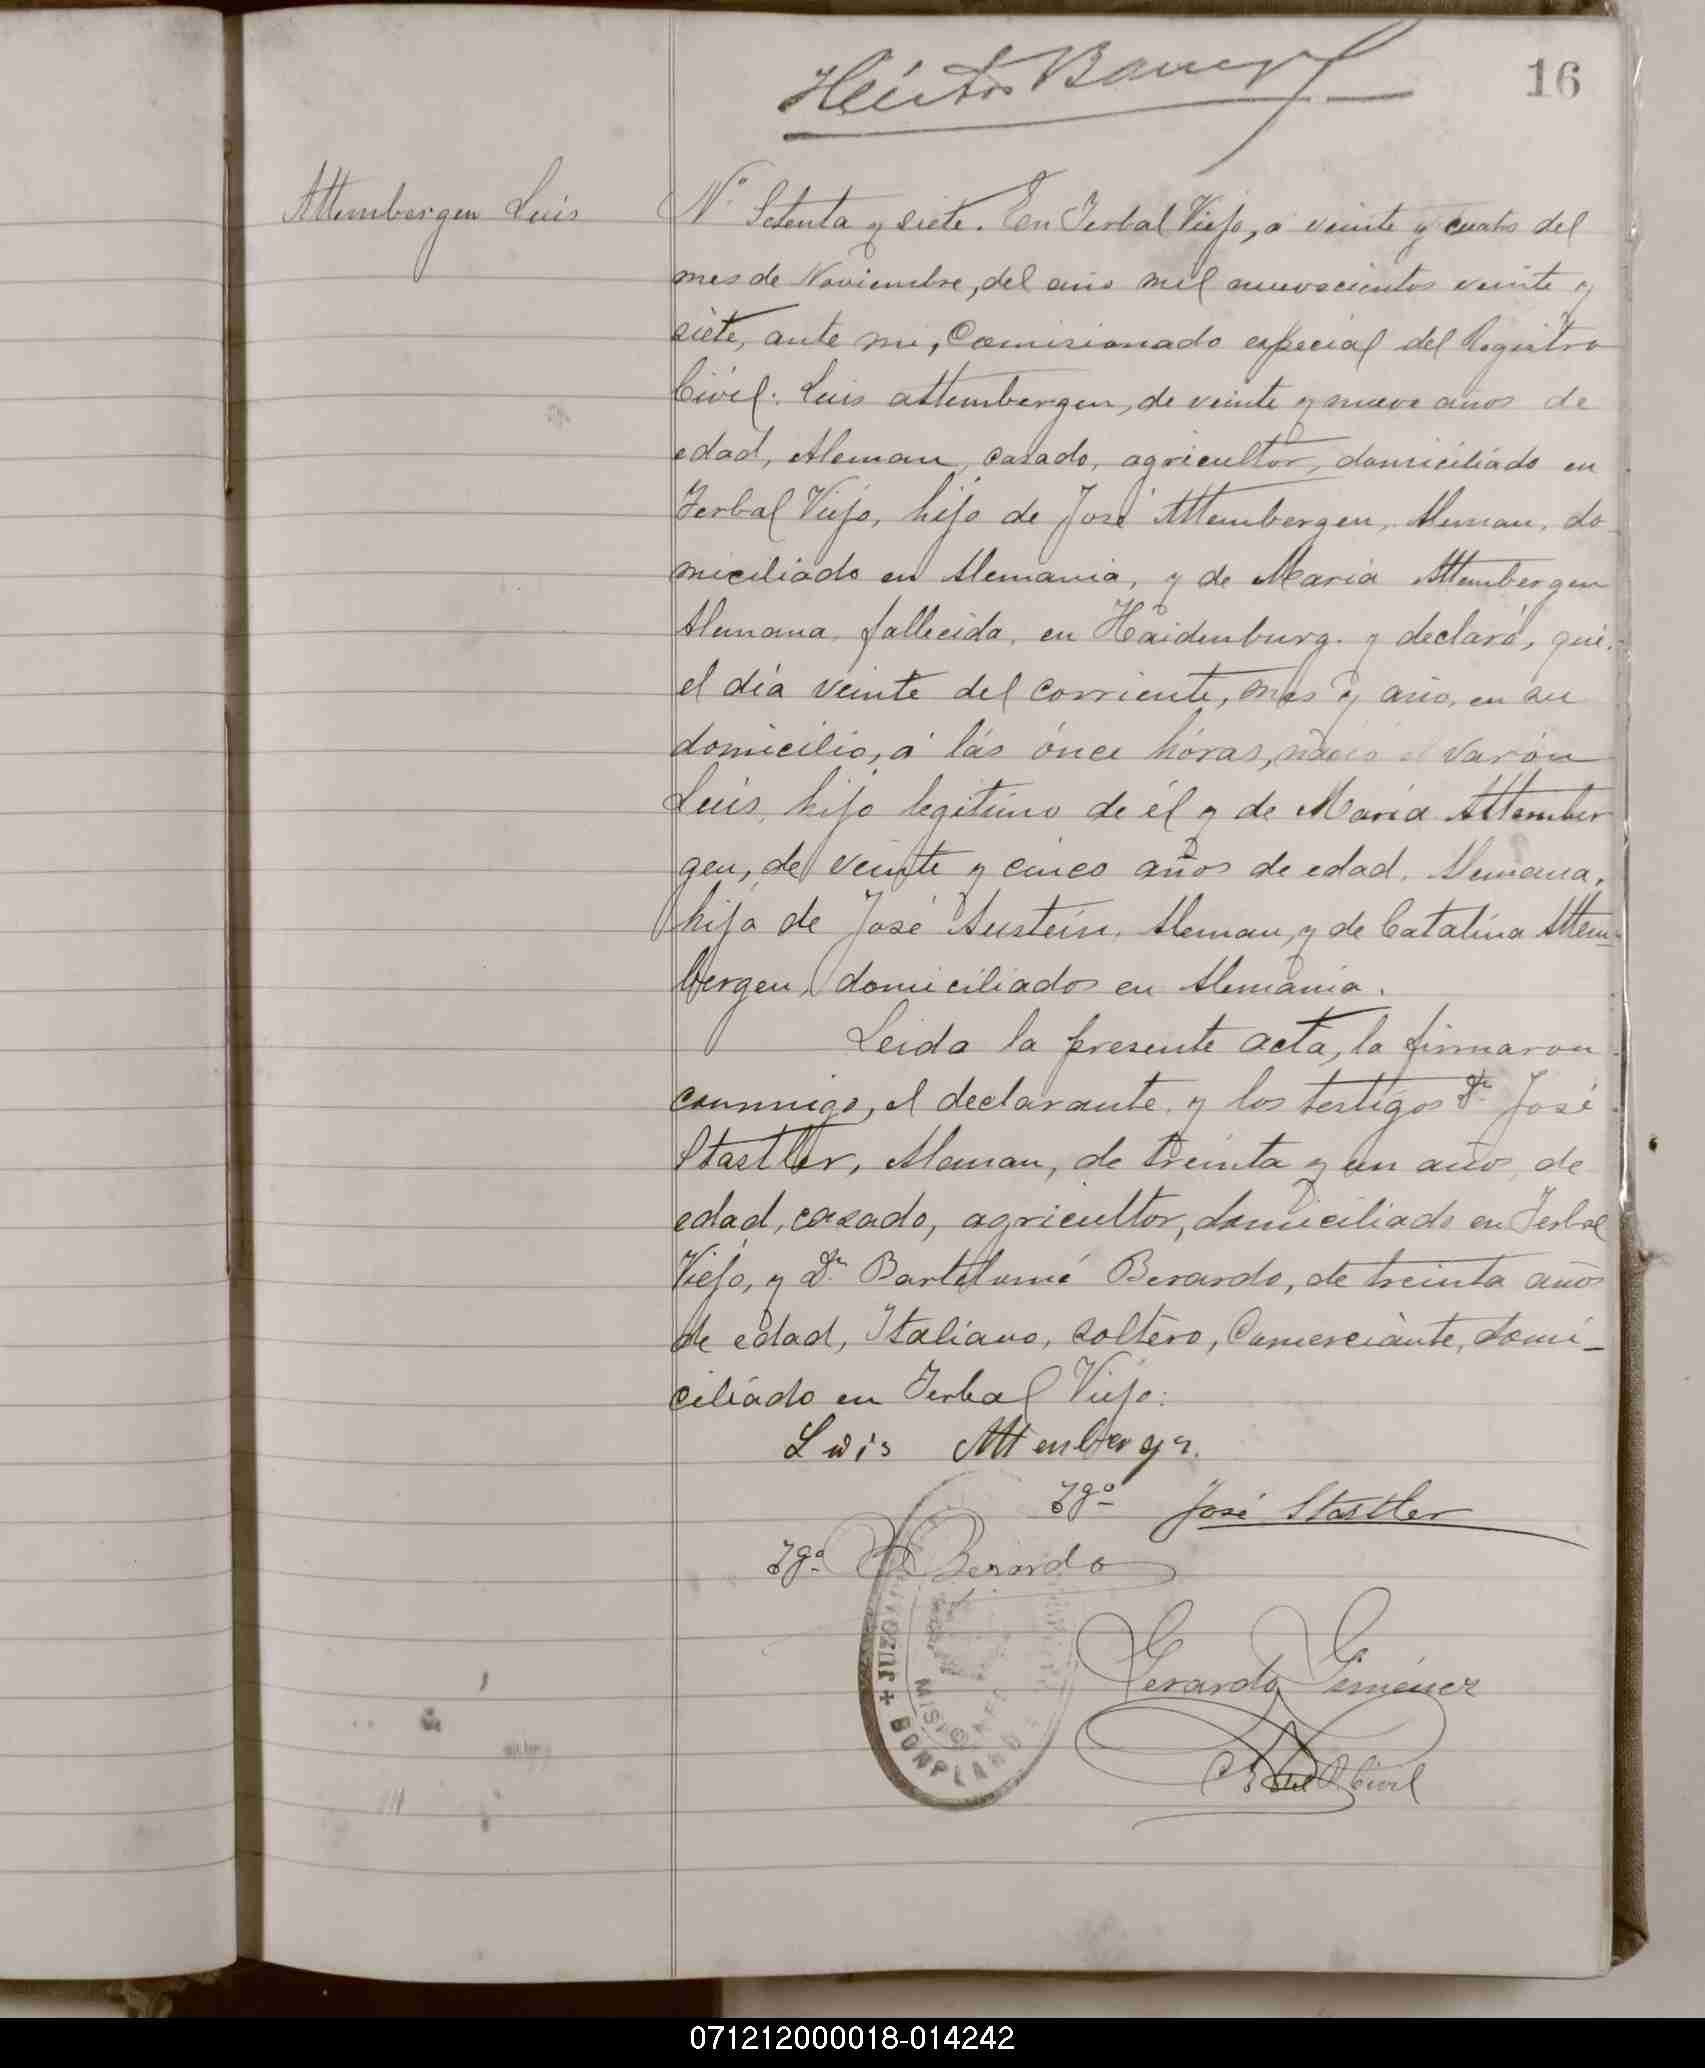 16
Attembergen Luis
Nº Setenta y siete. En Yerbal Viejo, a veinte y cuatro del
mes de Noviembre, del año mil nuevecientos veinte y
siete, ante mi, Comisionado especial del Registro
Civil: Luis Attembergen, de veinte y nueve años de
edad, Aleman, casado, agricultor, domiciliado en
Yerbal Viejo, hijo de José Attembergen, Aleman, do
miciliado en Alemania, y de Maria Attembergen
Alemana, fallecida, en Haidenburg. y declaró, que:
el día veinte del corriente, mes y año, en su
domicilio, á lás ónce hóras, nació el varón
Luis, hijo legitimo de él y de María Attember
gen, de veinte y cinco años de edad, Alemana,
hija de José Austein, Aleman, y de Catalina Attem-
bergen, domiciliados en Alemania.
Leida la presente acta, la firmaron
conmigo, el declarante, y los testigos Dn José
Stastler, Aleman, de treinta y un años, de
edad, casado, agricultor, domiciliado en Yerbal
Viejo, y Dn Bartolomé Berardo, de treinta años
de edad, Italiano, soltero, Comerciante, domi-
ciliado en Yerbal Viejo:
Luis Attenberger.
Tgo José Stastler
Tgo Berardo
JUZGADO
MISIONES
BONPLAND
Gerardo Giménez
del R Civil
071212000018-014242